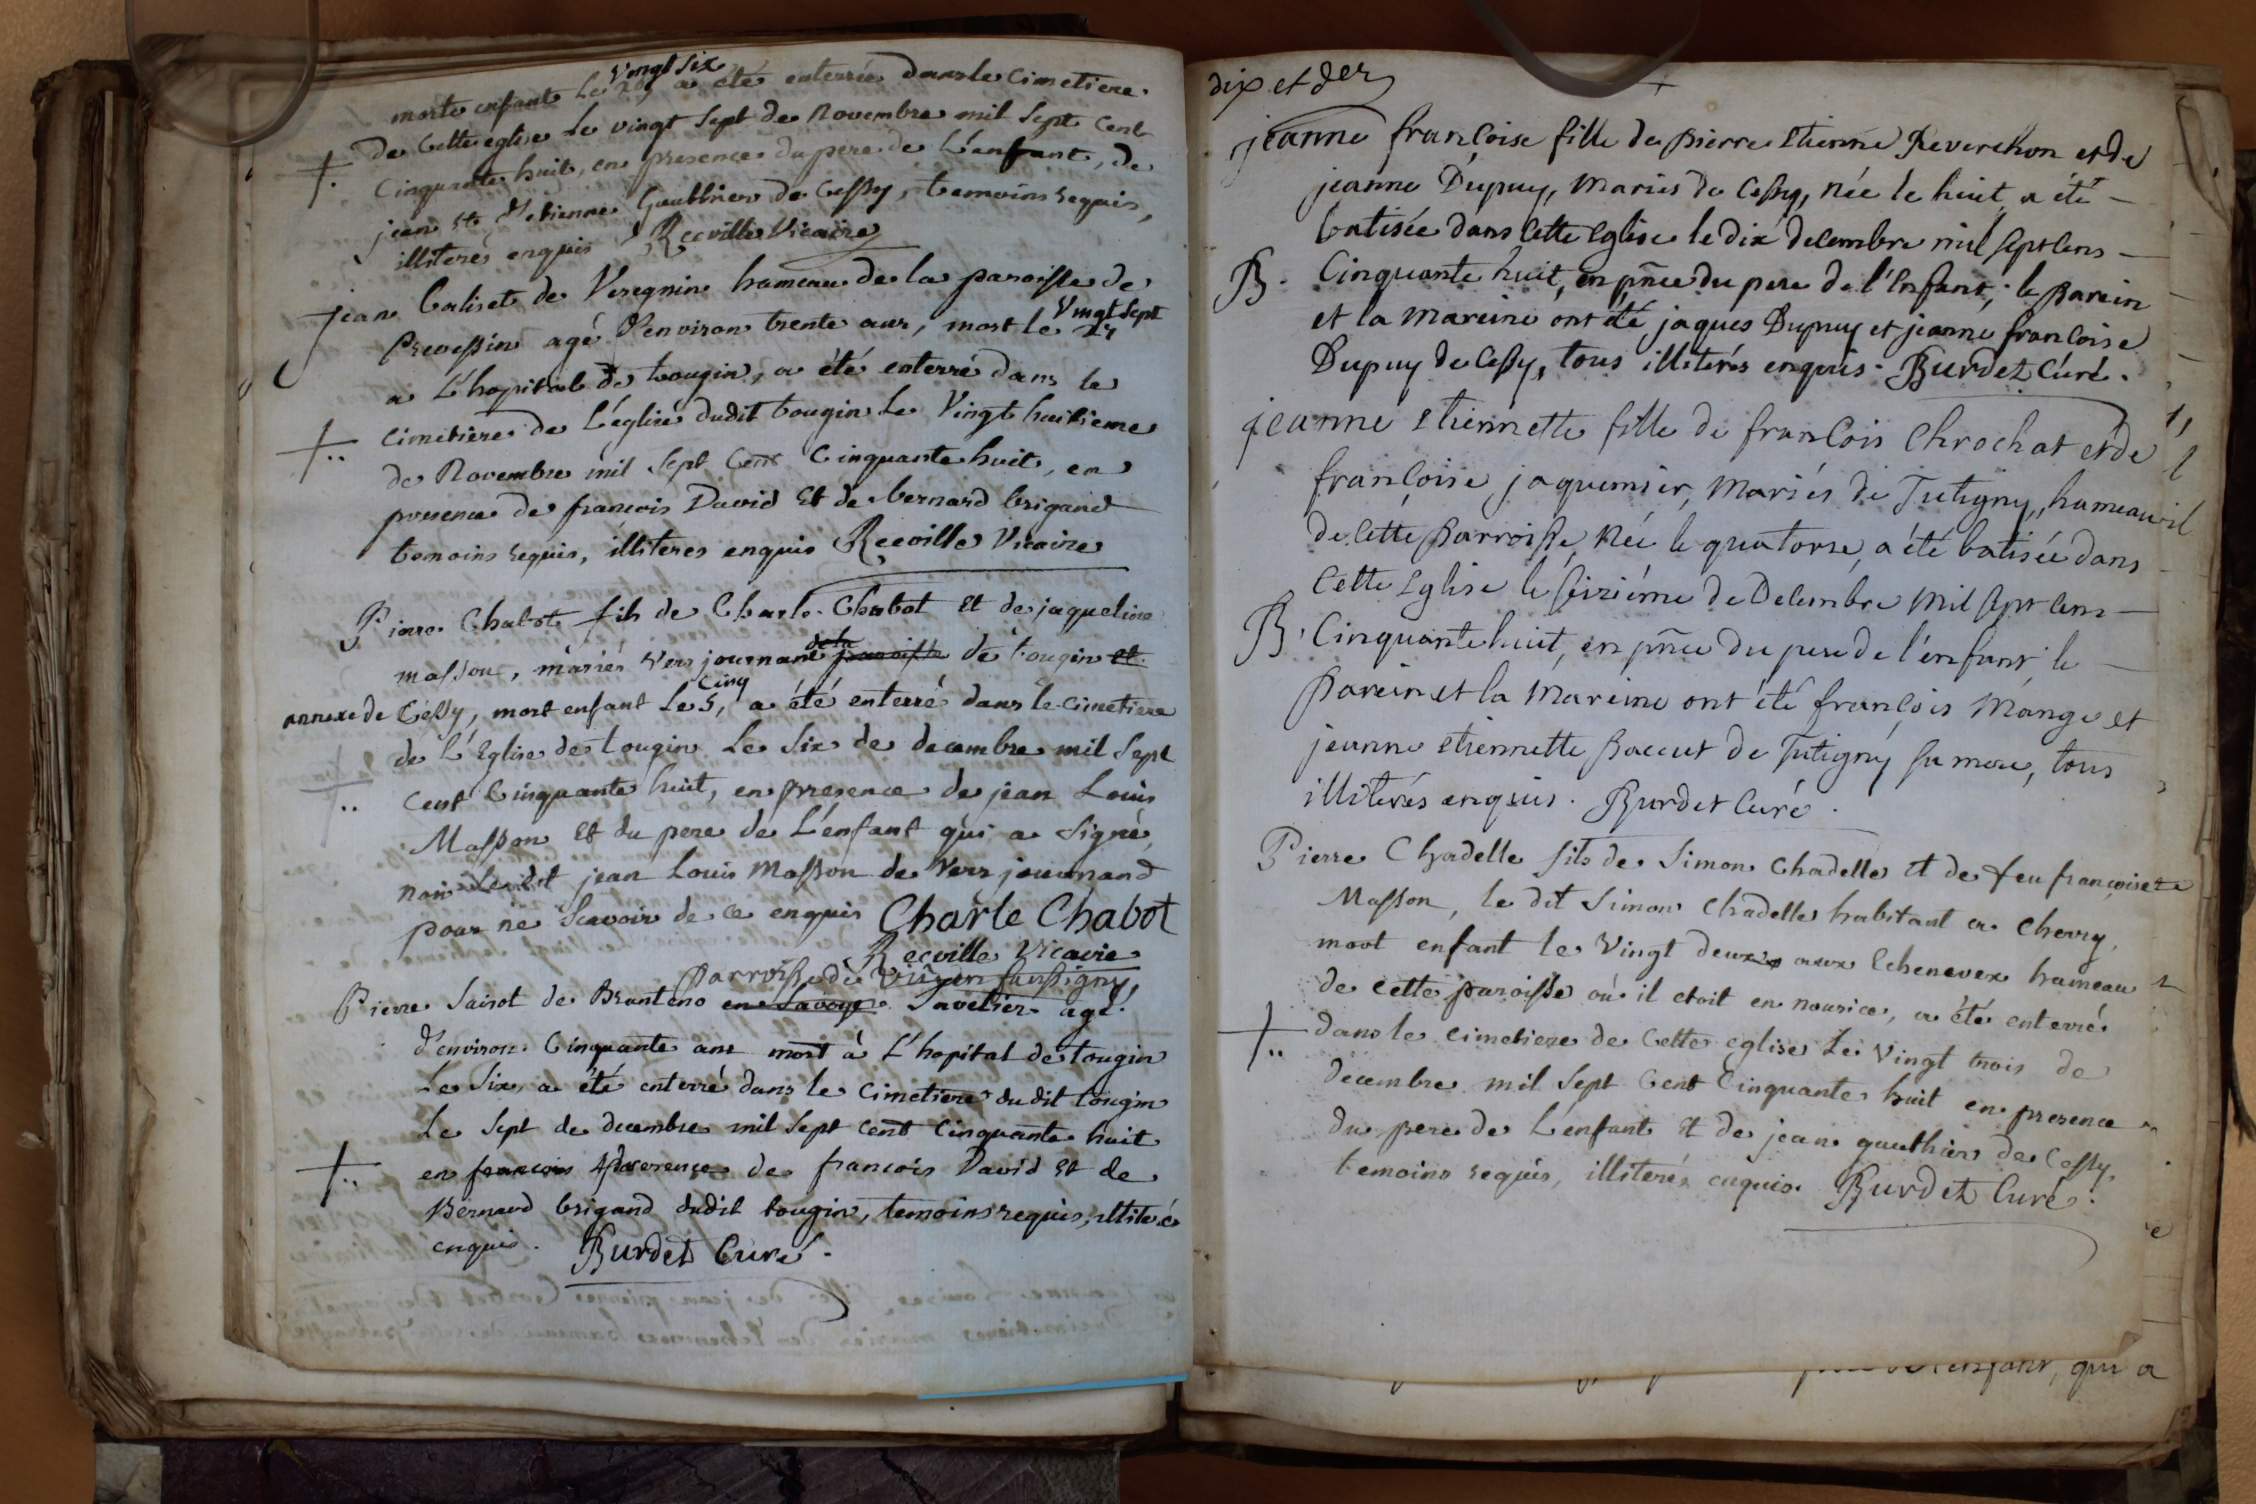 morte enfant le 26 vingt six a été enterrée dans le cimetiere
de cette eglise le vingt sept de Novembre mil sept cent
cinquante huit, en presence du pere de L'enfant, de
jean fils d'etienne Gauthier de Cessy, temoins requis,
illiterés enquis Recville Vicaire
jean Caliset de Veregnin hameau de la paroisse de
Prevessin agé d'environ trente ans, mort le 27 Vingt sept
a L'hopital de tougin, a été enterré dans le
cimetiere de L'eglise dudit tougin Le Vingt huitieme
de Novembre mil sept cent cinquante huit, en
presence de francois David Et de bernard brigand
temoins requis, illiteres enquis Recville Vicaire
Pierre Chabot fils de Charle Chabot Et de jaqueline
masson, mariés vers journand de la paroisse de tougin et
annexe de Cessy, mort enfant Le 5, cinq a été enterré dans le cimetiere
de L'Eglise de tougin Le Six de decembre mil sept
cent Cinquante huit, en presence de jean Louis
Masson Et du pere de L'enfant qui a signé,
non Ledit jean Louis Masson de Vers journand
pour ne Scavoir de ce enquis Charle Chabot
Recville Vicaire
Parroisse de Viu en faussigny,
Pierre Sairot de Branteno en Savoye Savetier agé
d'environ Cinquante ans mort à L'hopital de tougin
Le Six, a été enterré dans le cimetiere dudit tougin
Le Sept de decembre mil sept cent cinquante huit
en francois presence de francois David Et de
Bernard brigand dudit tougin, temoins requis, illiterés
enquis. Burdet Curé.
dix et der
jeanne francoise fille de pierre Etienne Reverchon et de
jeanne Dupuy, Mariés de Cessy, Née le huit, a été
batisée dans cette Eglise le dix decembre mil sept cens
B. Cinquante huit, en pnce du pere de l'Enfant, le Parein
et la Mareine ont été jaques Dupuy et jeanne francoise
Dupuy de Cessy, tous illiterés enquis. Burdet Curé.
jeanne Etiennette fille de francois Chrochat et de
francoise jaquemier, Mariés de Tutigny, hameau
de cette Parroisse, Née le quatorse, a été batisée dans
cette Eglise le seiziéme de Decembre Mil sept cens
B. Cinquante huit, en pnce du pere de l'enfant, le
Parein et la Mareine ont été francois Mange et
jeanne Etiennette Baccut de Tutigny sa mere, tous
illiterés enquis. Burdet Curé.
Pierre Chadelle fils de Simon Chadelle Et de feu francoise
Masson, le dit Simon Chadelle habitant a Chevry,
mort enfant le Vingt deux aux Echenevex hameau
de cette paroisse où il etoit en nourice, a été enterré
dans le cimetiere de Cette eglise Le Vingt trois de
decembre mil Sept Cent Cinquante huit en presence
du pere de L'enfant Et de jean gauthier de Cessy
temoins requis, illiterés enquis. Burdet Curé.
l'enfant, qui a